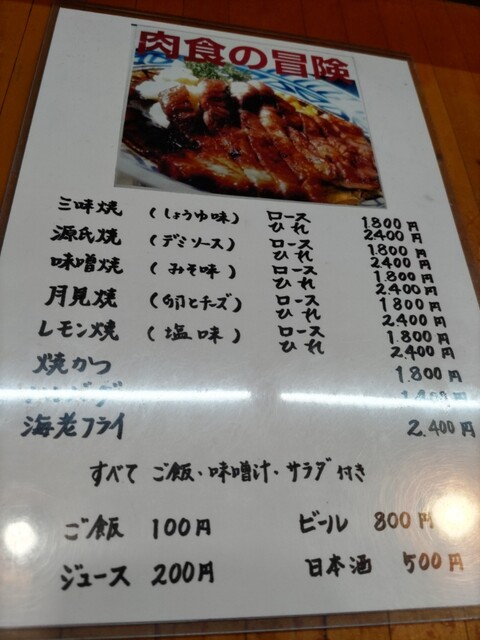 肉食の冒険
三味焼 (しょうゆ味) ロース 1.800円
ひれ 2.400円
源氏焼 (デミソース) ロース 1.800円
ひれ 2.400円
味噌焼 (みそ味) ロース 1.800円
ひれ 2.400円
月見焼 (卵とチーズ) ロース 1.800円
ひれ 2.400円
レモン焼 (塩味) ロース 1.800円
ひれ 2.400円
焼かつ 1.800円
海老フライ 2.400円
すべて ご飯・味噌汁・サラダ付き
ご飯 100円 ビール 800円
ジュース 200円 日本酒 500円